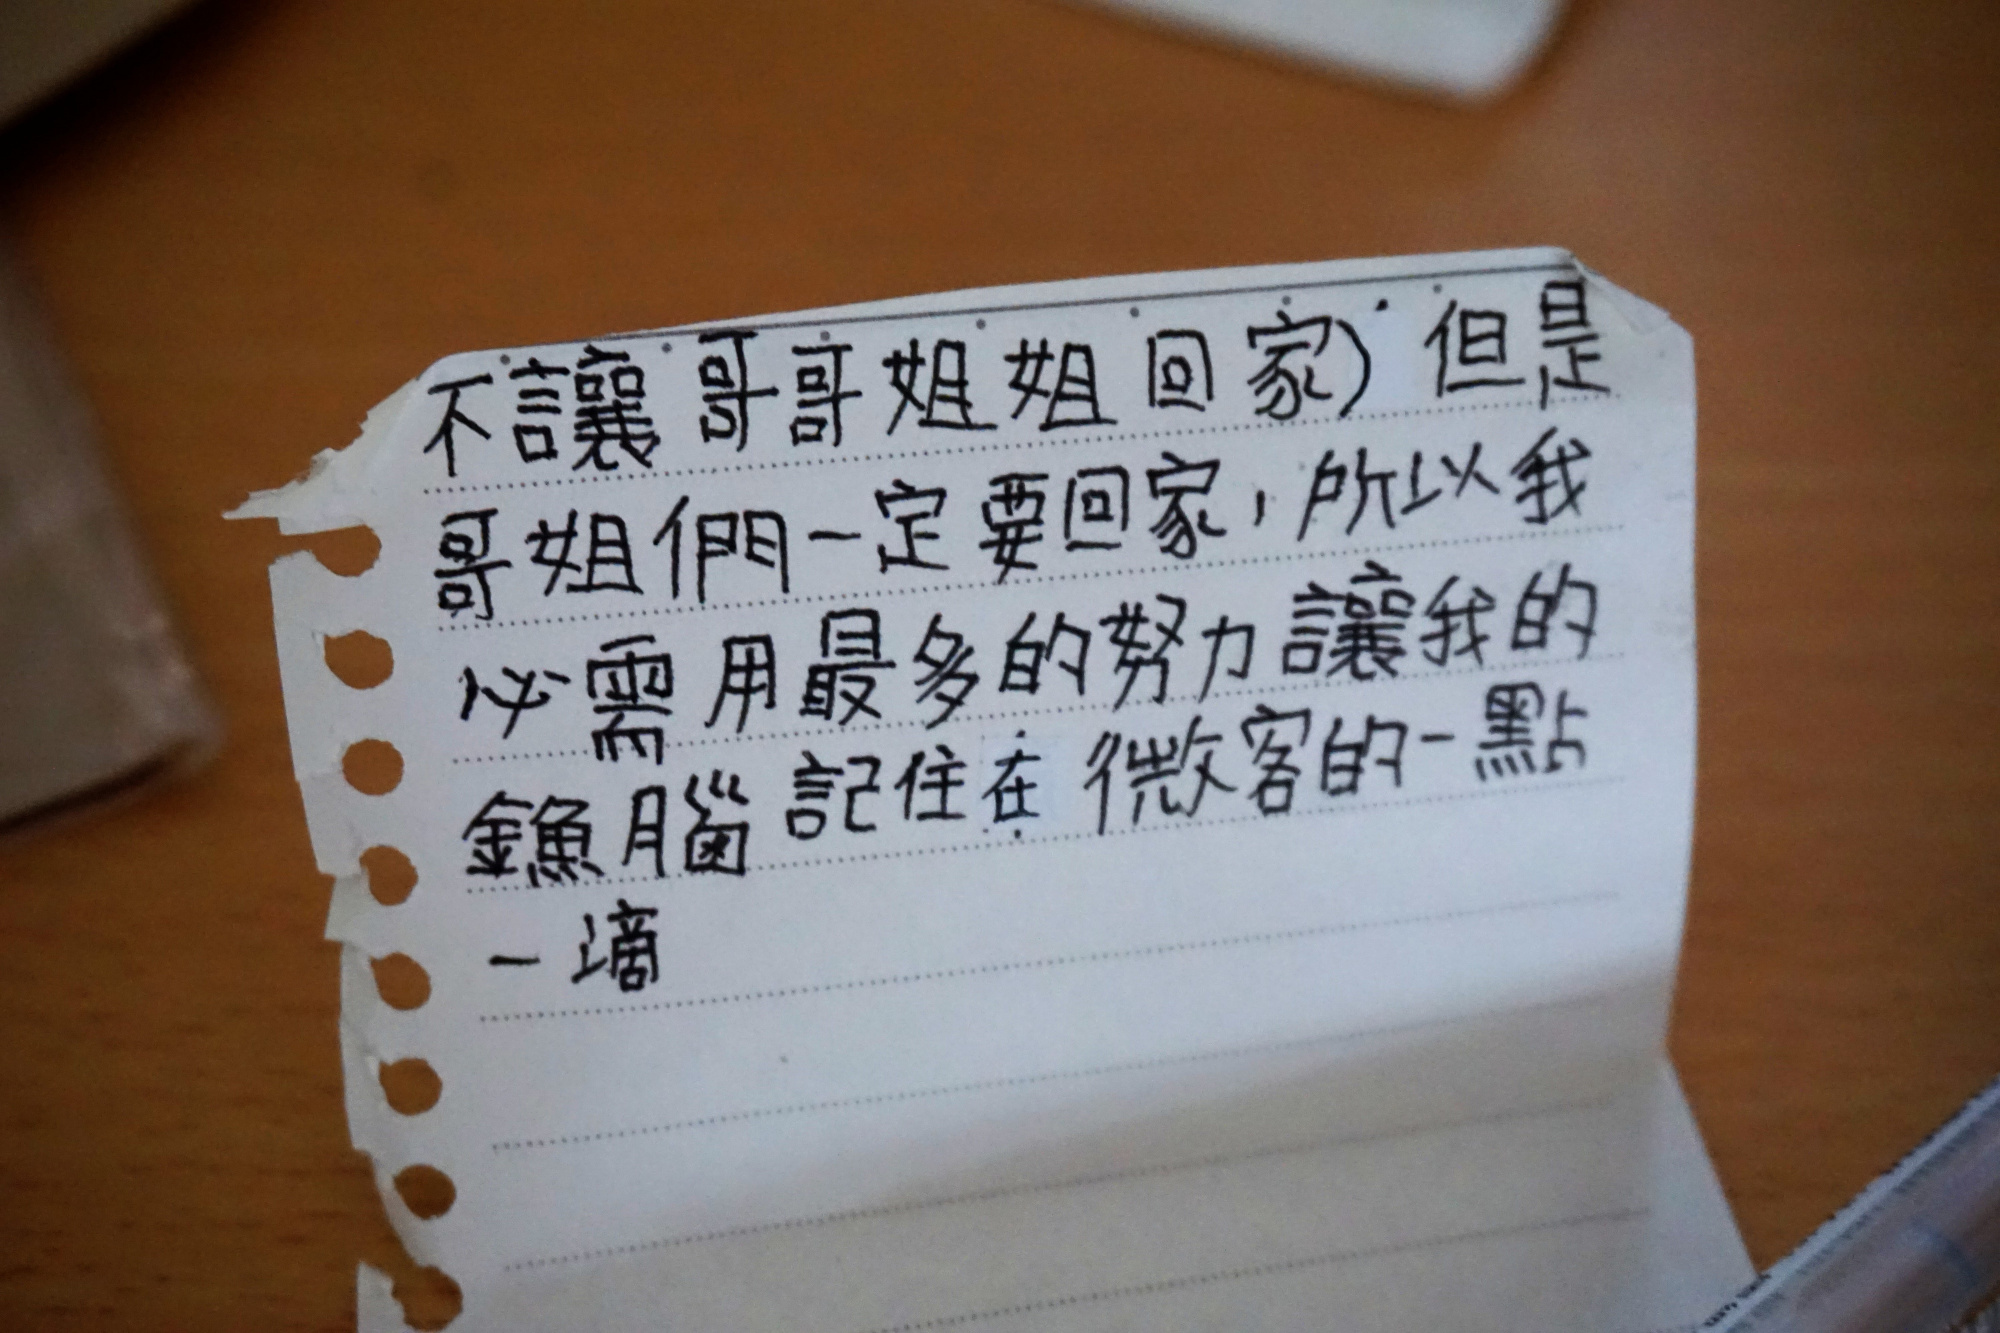 不讓哥哥姐姐回家)但是
哥姐們一定要回家,所以我
必需用最多的努力讓我的
金魚腦記住在微客的一點
一滴